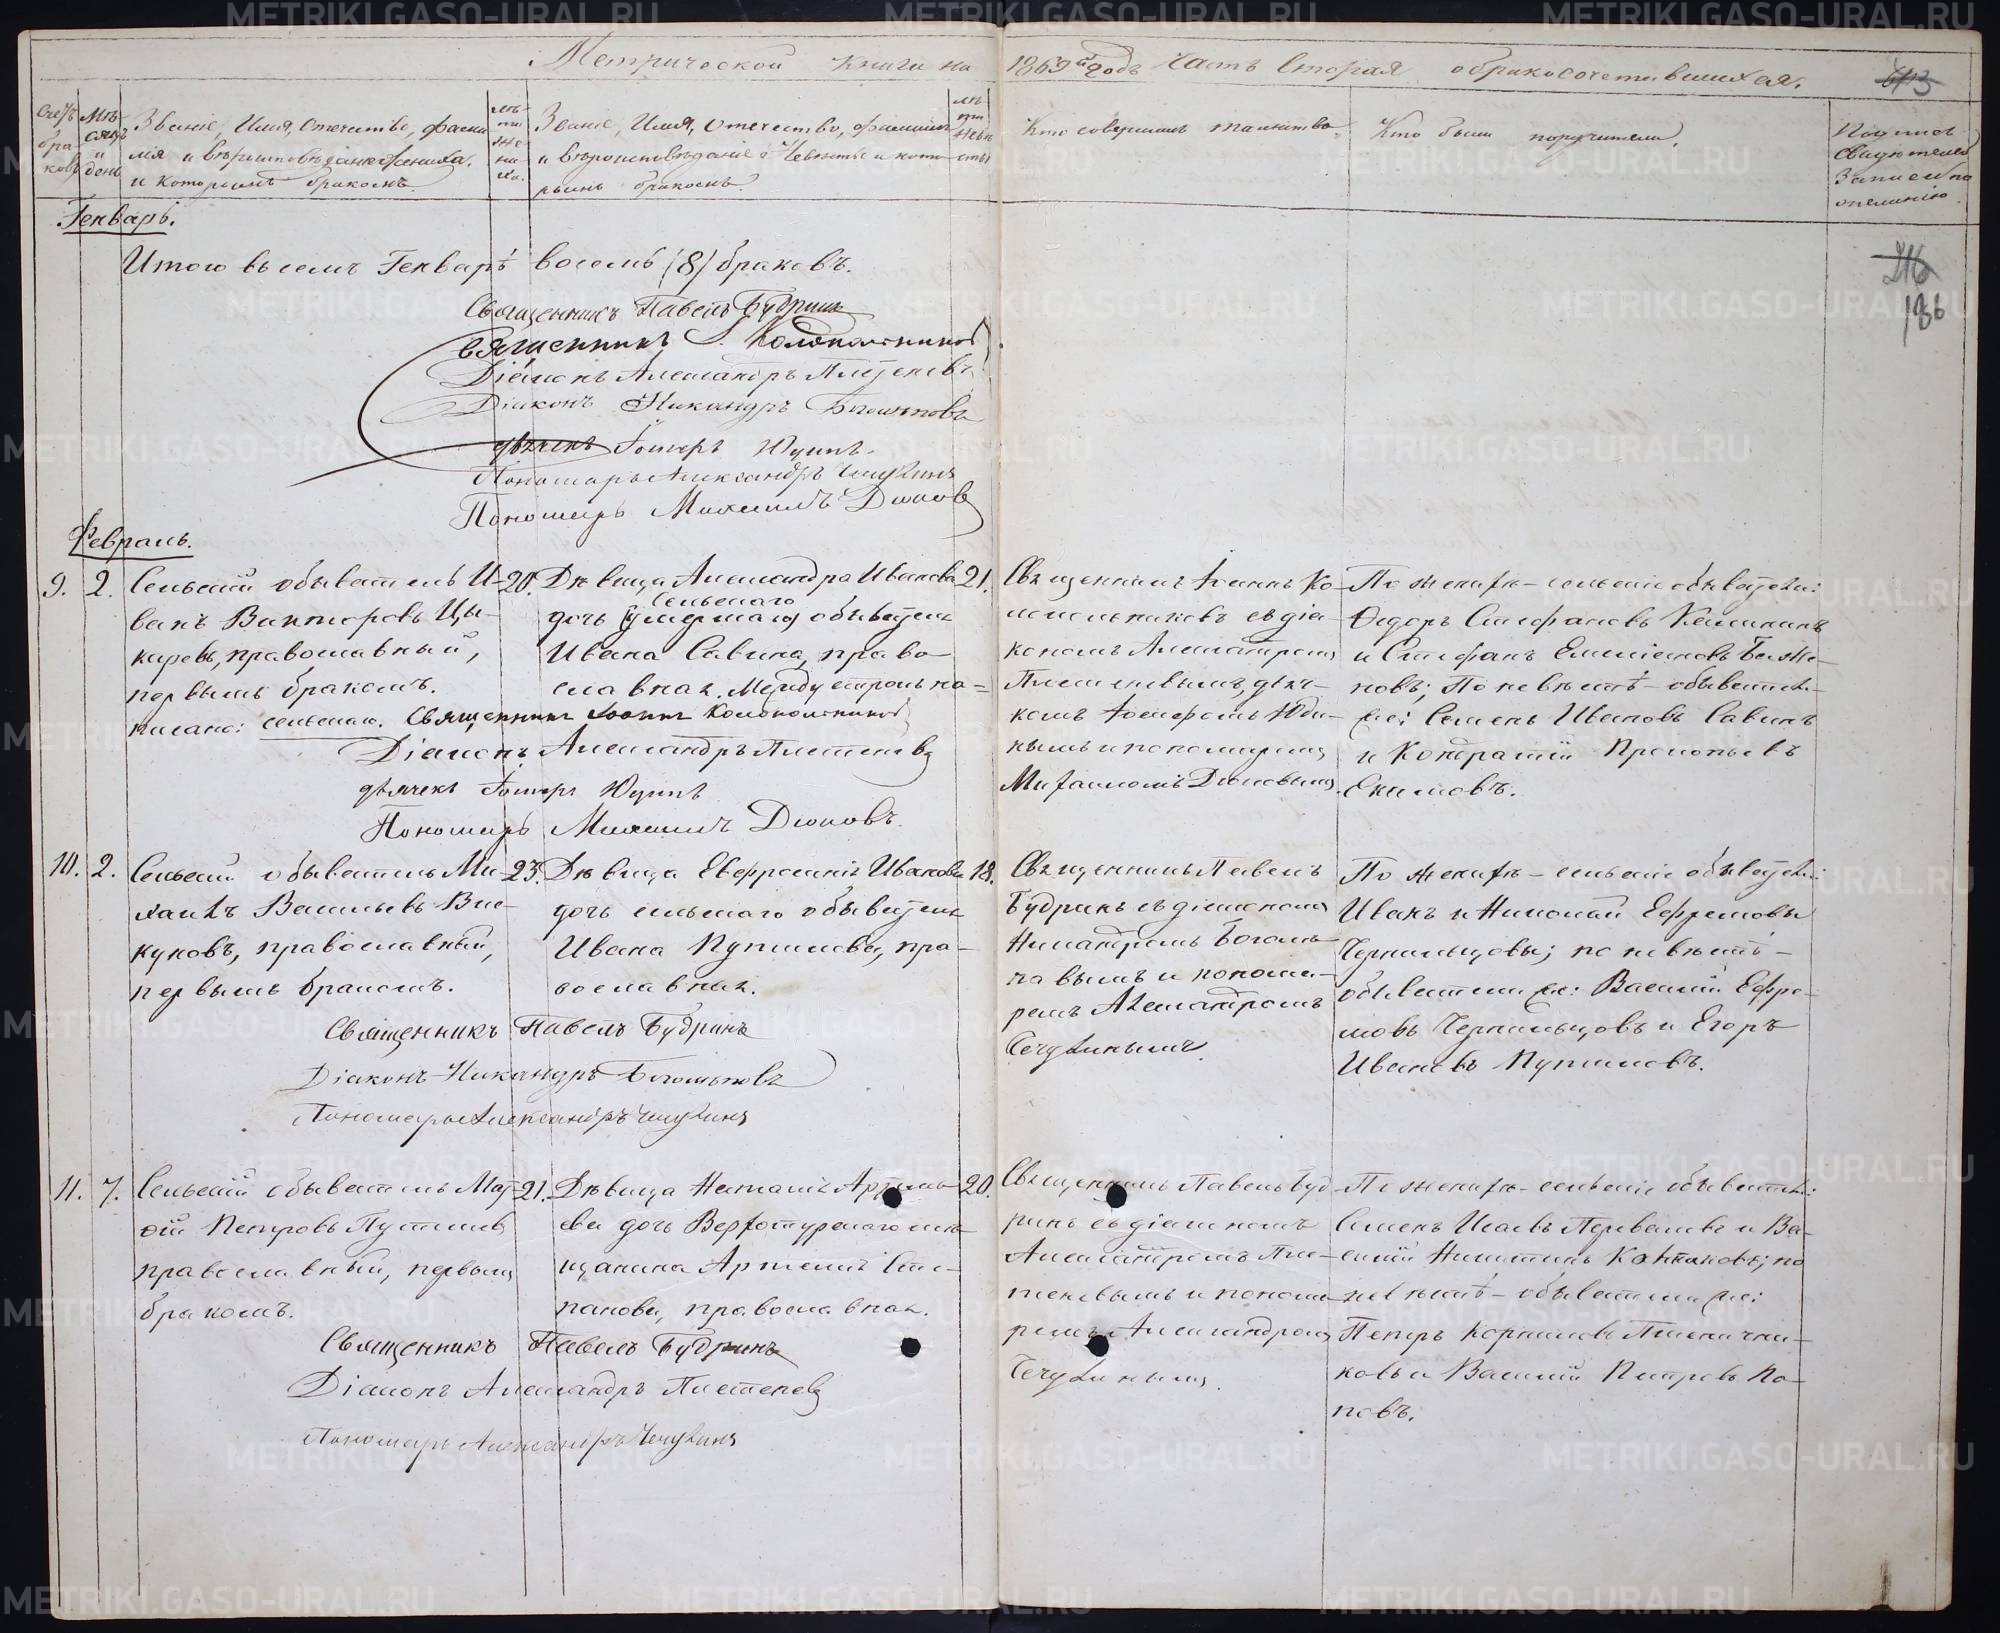 Метрической книги на 1869й годъ часть вторая о бракосочетавшихся.
Счетъ браковъ
Мѣсяцъ и день
Званіе, Имя, Отечество, фами
лія и вѣроисповѣданіе жениха,
и которымъ бракомъ.
лѣта жениха.
Званіе, Имя, отечество, фамилія
и вѣроисповѣданіе невѣсты и кото
рымъ бракомъ.
лѣта невѣсты
Кто совершалъ таинство.
Кто были поручители.
Подпись
свидетелей
Записи по
опис. желанію
Генварь.
Итого въ семъ Генварѣ восемь (8) браковъ.
186
Священникъ Павелъ Будринъ
Священникъ І. Колокольниковъ
Діаконъ Александръ Плетеневъ
Діаконъ Никандръ Богомоловъ
дьячекъ Іосифъ Юдинъ.
Пономарь Александръ Чечулинъ
Пономарь Михаилъ Дюковъ
Февраль.
9. 2. Сельскій обыватель И-
ванъ Викторовъ Цы-
каревъ, православный,
первымъ бракомъ.
20.
Дѣвица Александра Иванова
сельскаго
дочь (умершаго) обывателя
Ивана Савина, право-
славная. Между строкъ на=
писано: сельскаго. Священникъ Іоаннъ Колокольниковъ
21.
Священникъ Іоаннъ Ко-
локольниковъ съ діа-
кономъ Александромъ
Плетеневымъ, дьяч-
комъ Іосифомъ Юди-
нымъ и пономаремъ
Михаиломъ Дюковымъ.
По женихѣ – сельскіе обыватели:
Федоръ Стефановъ Калининъ
и Стефанъ Емельяновъ Бажe-
новъ; По невѣстѣ – обывател-
и: Семенъ Ивановъ Савинъ
и Кондратій Прокопьевъ
Екимовъ.
Діаконъ Александръ Плетеневъ
дьячекъ Іосифъ Юдинъ
Пономарь Михаилъ Дюковъ.
10. 2. Сельскій обыватель Ми-
хаилъ Васильевъ Вис-
куновъ, православный,
первымъ бракомъ.
23.
Дѣвица Евфросинія Иванова
дочь сельскаго обывателя
Ивана Пупилова, пра-
вославная.
18.
Священникъ Павелъ
Будринъ съ діакономъ
Никандромъ Богомо-
ловымъ и понома-
ремъ Александромъ
Чечулинымъ.
По женихѣ – сельскіе обыватели:
Иванъ и Николай Ефремовы
Чернильцовы; по невѣстѣ –
обыватели: Василій Ефре-
мовъ Чернильцовъ и Егоръ
Ивановъ Пупиловъ.
Священникъ Павелъ Будринъ
Діаконъ Никандръ Богомоловъ
Пономарь Александръ Чечулинъ
11. 7. Сельскій обыватель Мат-
ѳій Петровъ Пустыловъ
православный, первымъ
бракомъ.
21.
Дѣвица Наталія Артемь-
ева дочь Верхотурскаго мѣ-
щанина Артемія Сте-
панова, православная.
20.
Священникъ Павелъ Буд-
ринъ съ діакономъ
Александромъ Пле-
теневымъ и понома-
ремъ Александромъ
Чечулинымъ.
По женихѣ – сельскіе обыватели:
Семенъ Исаевъ Перваловъ и Ва-
силій Никитинъ Коптяковъ; по
невѣстѣ – обыватели:
Петръ Корниловъ Пшенични-
ковъ и Василій Петровъ По-
повъ.
Священникъ Павелъ Будринъ
Діаконъ Александръ Плетеневъ
Пономарь Александръ Чечулинъ
METRIKI.GASO-URAL.RU